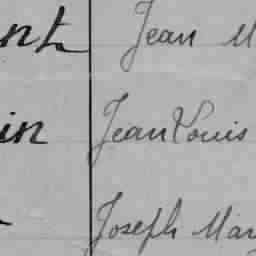 nt Jean M
in Jean Louis
Joseph Mar